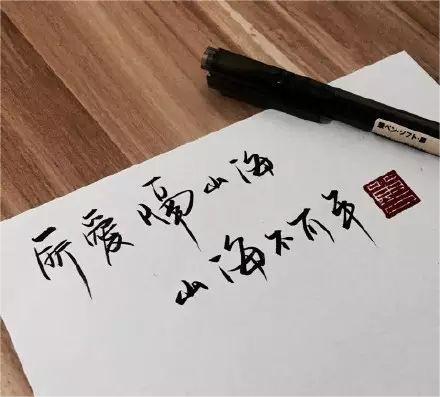 所爱隔山海
山海不可平
筆ペン・ソフト・黒